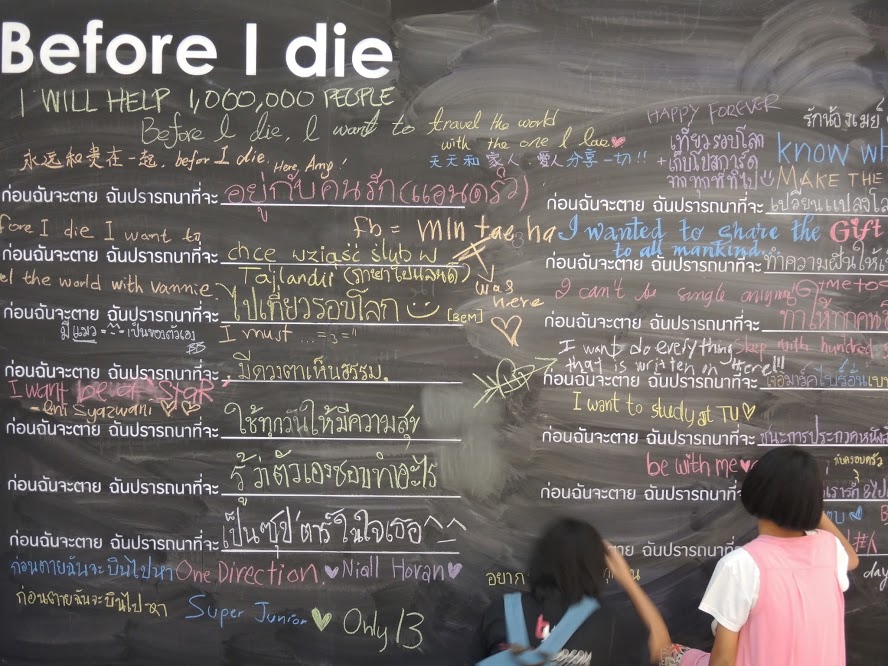 Before I die
I WILL HELP 1,000,000 PEOPLE
Before I die, I want to travel the world
with the one I love
永远和贵在一起, befor I die.
Here, Amp!
天天和家人+爱人分享一切!!
ก่อนฉันจะตาย ฉันปรารถนาที่จะ อยู่กับคนรัก(แอนดริว)
fore I die I want to
fb = min tae ha
ก่อนฉันจะตาย ฉันปรารถนาที่จะ chce wziąść ślub w
Tajlandii
el the world with Vannie.
I was here
ก่อนฉันจะตาย ฉันปรารถนาที่จะ ไปเที่ยวรอบโลก
[BEM]
มีแมว เป็นของตัวเอง
I must ... =3="
ก่อนฉันจะตาย ฉันปรารถนาที่จะ มีดวงตาเห็นธรรม.
I want be a STAR
- Oni Syazwani
ก่อนฉันจะตาย ฉันปรารถนาที่จะ ใช้ทุกวันให้มีความสุข
ก่อนฉันจะตาย ฉันปรารถนาที่จะ รู้ว่าตัวเองชอบทำอะไร
ก่อนฉันจะตาย ฉันปรารถนาที่จะ เป็นซุป'ตาร์ในใจเธอ^_^
ก่อนตายฉันจะบินไปหา One Direction ♥ Niall Horan ♥
ก่อนตายฉันจะบินไปหา Super Junior Only 13
HAPPY FOREVER
รักน้องเมย์
เที่ยวรอบโลก
เก็บโปสการ์ด
จากทุกที่ที่ไป
know wh
MAKE THE
ก่อนฉันจะตาย ฉันปรารถนาที่จะ เปลี่ยนแปลงโล
I wanted to share the Gift
to all mankind.
ก่อนฉันจะตาย ฉันปรารถนาที่จะ ทำความฝันให้เ
I can't be single anymore
ก่อนฉันจะตาย ฉันปรารถนาที่จะ ทำให้ทุกคน
I want do everything
that is written in there!!!
Sleep with hundred
ก่อนฉันจะตาย ฉันปรารถนาที่จะ เจอมาร์คไปรอัน
I want to study at TU
ก่อนฉันจะตาย ฉันปรารถนาที่จะ ชนะการประกวดหนังสั
be with me
กับครอบครัว
ก่อนฉันจะตาย ฉันปรารถนาที่
ก่อนฉันจะตาย ฉันปรารถนาที่จะ
อยาก
day